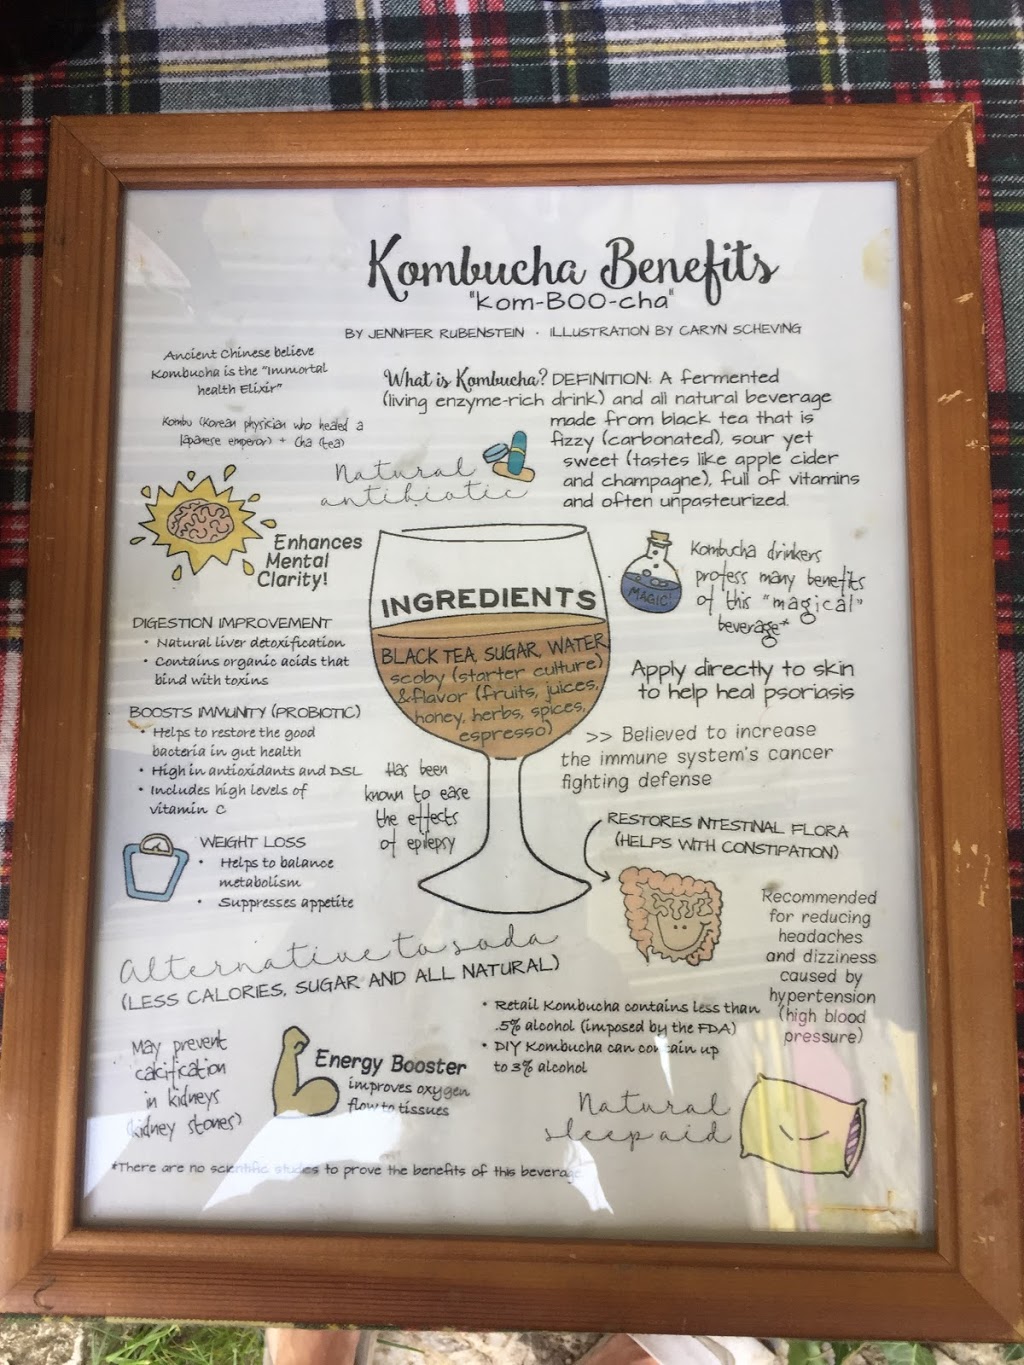 Kombucha Benefits
"kom-BOO-cha"
BY JENNIFER RUBENSTEIN · ILLUSTRATION BY CARYN SCHEVING
Ancient Chinese believe
Kombucha is the "Immortal
health Elixir"
Kombu (Korean physician who healed a
Japanese emperor) + Cha (tea)
What is Kombucha? DEFINITION: A fermented
(living enzyme-rich drink) and all natural beverage
made from black tea that is
fizzy (carbonated), sour yet
sweet (tastes like apple cider
and champagne), full of vitamins
and often unpasteurized.
Natural
antibiotic
Enhances
Mental
Clarity!
INGREDIENTS
BLACK TEA, SUGAR, WATER,
scoby (starter culture)
&flavor (fruits, juices,
honey, herbs, spices,
espresso)
MAGIC!
Kombucha drinkers
profess many benefits
of this "magical"
beverage*
DIGESTION IMPROVEMENT
• Natural liver detoxification
• Contains organic acids that
bind with toxins
Apply directly to skin
to help heal psoriasis
BOOSTS IMMUNITY (PROBIOTIC)
• Helps to restore the good
bacteria in gut health
• High in antioxidants and DSL
• Includes high levels of
vitamin C
>> Believed to increase
the immune system's cancer
fighting defense
Has been
known to ease
the effects
of epilepsy
RESTORES INTESTINAL FLORA
(HELPS WITH CONSTIPATION)
WEIGHT LOSS
• Helps to balance
metabolism
• Suppresses appetite
Recommended
for reducing
headaches
and dizziness
caused by
hypertension
(high blood
pressure)
Alternative to soda
(LESS CALORIES, SUGAR AND ALL NATURAL)
• Retail Kombucha contains less than
.5% alcohol (imposed by the FDA)
• DIY Kombucha can contain up
to 3% alcohol
May prevent
calcification
in kidneys
(kidney stones)
Energy Booster
improves oxygen
flow to tissues
Natural
sleep aid
*There are no scientific studies to prove the benefits of this beverage